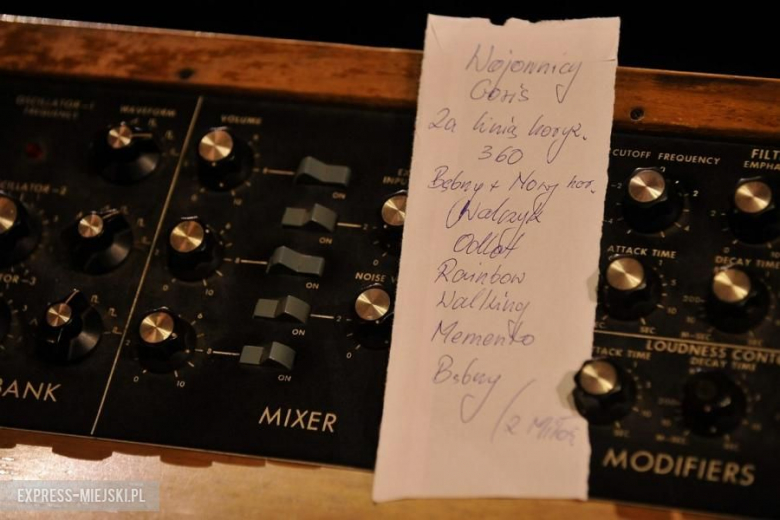 Wojownicy
Gdziś
Za linią horyz.
360
Bębny + Nowy hor.
Walczyk
Odlot
Rainbow
Walking
Memento
Bębny
OSCILLATOR-1
FREQUENCY
WAVEFORM
VOLUME
ON
ON
ON
ON
ON
NOISE
BANK
MIXER
CUTOFF FREQUENCY
FILT
EMPHA
ATTACK TIME
DECAY TIME
LOUDNESS CONT
DECAY TIME
MODIFIERS
EXPRESS-MIEJSKI.PL